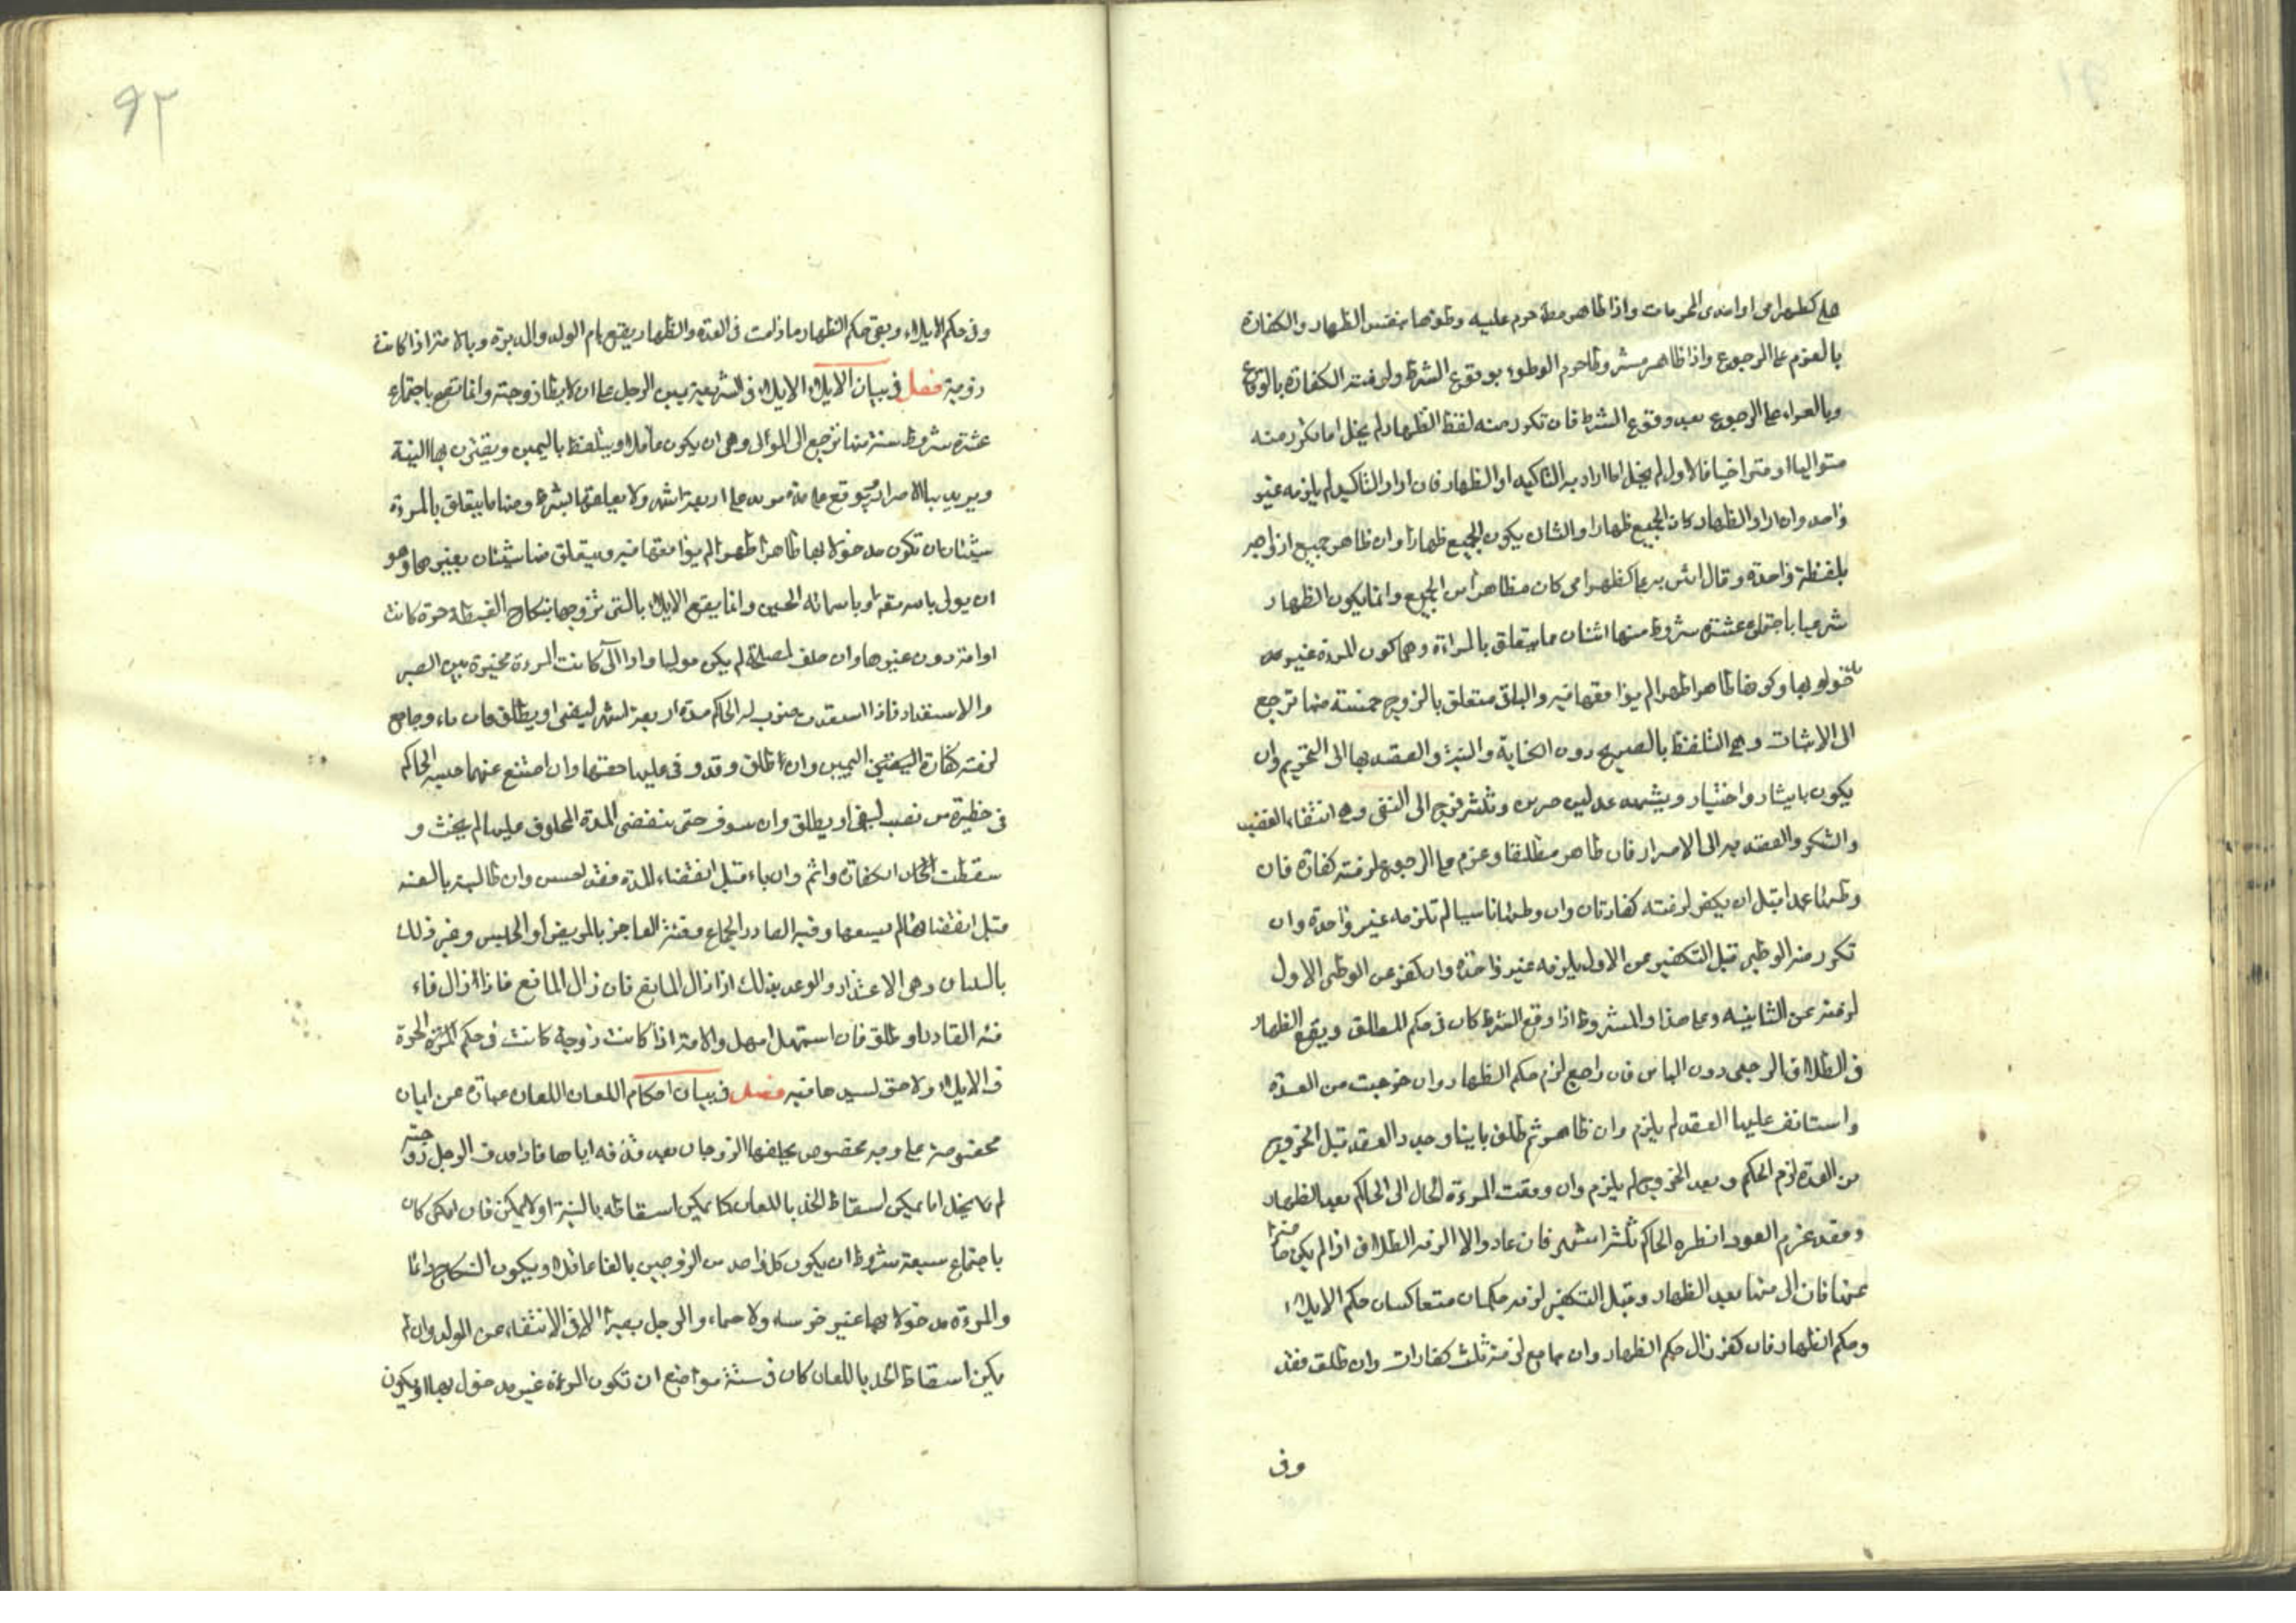 على كظهر امى او احدى المحرمات واذا ظاهر مطلقا حرم عليه وطؤها بنفس الظهار والكفارة
بالعزم على الرجوع واذا ظاهر مشروطا حرم الوطوء بوقوع الشرط ولزمته الكفارة بالوقاع
وبالعزم على الرجوع بعد وقوع الشرط فان تكرر منه لفظ الظهار لم يخل اما تكرر منه
متواليا او متراخيا فالاول لم يخل اما اراد به التاكيد او الظهار فان اراد التاكيد لم يلزمه غير
واحد وان اراد الظهار كان الجميع ظهارا والثانى يكون الجميع ظهارا وان ظاهر جميع ازواجه
بلفظة واحدة وقال انتن على كظهر امى كان مظاهرا من الجميع وانما يكون الظهار
شرعيا باجتماع عشرة شروط منها اثنان مما يتعلق بالمراة وهما كون المرءة غير مد
خولو بها وكونها طاهرا طهرا لم يواقعها فيه والباقى متعلق بالزوج خمسة منها ترجع
الى الاثبات وهى التلفظ بالصريح دون الكناية والنية والقصد بها الى التحريم وان
يكون بايثار واختيار ويشهد عدلين حرين وثلثة ترجع الى النفى وهى انتفاء الغضب
والسكر والقصد به الى الاضرار فان ظاهر مطلقا وعزم على الرجوع لزمته كفارة فان
وطئها عمدا قبل ان يكفر لزمته كفارتان وان وطئها ناسيا لم تلزمه غير واحدة وان
تكرر منه الوطى قبل التكفير عن الاول يلزمه غير واحدة وان كفر عن الوطى الاول
لزمته عن الثانيه وعلى هذا والمشروط اذا وقع الشرط كان فى حكم المطلق ويقع الظهار
فى الطلاق الرجعى دون الباين فان راجع لزم حكم الظهار وان خرجت من العدة
واستانف عليها العقد لم يلزم وان ظاهر ثم طلق باينا وجدد العقد قبل الخروج
من العدة لزم الحكم وبعد الخروج لم يلزم وان رفعت المرءة الحال الى الحاكم بعد الظهار
وفقد عزم العود انظره الحاكم ثلثة اشهر فان عاد والا الزمه الطلاق اذا لم يكن عاجزا
عنها فان الى منها بعد الظهار وقبل التكفير لزمه حكمان متعاكسان حكم الايلاء
وحكم الظهار فان كفر زال حكم الظهار وان جامع لزمته ثلث كفارات وان طلق فقد
وفى
٩٢
وفى حكم الايلاء وبقى حكم الظهار ما دامت فى العدة والظهار يقع بام الولد والمدبرة وبالامة اذا كانت
زوجة فصل فى بيان الايلاء الايلاء فى الشريعة يمين الرجل على ان لا يطأ زوجته وانما تقع باجتماع
عشرة شروط ستة منها ترجع الى الموالى وهى ان يكون عاقلا ويتلفظ باليمين ويقترن بها النية
ويريد بها الاضرار ويوقع على مدة تزيد على اربعة اشهر ولا يعلقها بشرط ومنها ما يتعلق بالمرءة
شيئان ان تكون مدخولا بها طاهرا طهرا لم يواقعها فيه ويتعلق منها شيئان بغيرهما وهو
ان يولى باسم الله او باسمائه الحسنى وانما يقع الايلاء بالتى تزوجها بنكاح الغبطة حرة كانت
او امة دون غيرها وان حلف لمصلحة لم يكن موليا واذا آلى كانت المرءة مخيرة بين الصبر
والاستعداء فاذا استعدت ضرب له الحاكم مدة اربعة اشهر ليفىء او يطلق فان فاء وجامع
لزمته كفارة اليمين وان طلق وقد وفى عليها حقها وان امتنع عنهما حبسه الحاكم
فى حظيرة من قصب ليفىء او يطلق وان سوف حتى تنقضى المدة المحلوف عليها لم يحنث و
سقطت الكفارة واثم وان فاء قبل انقضاء المدة فقد احسن وان طالبته بالفئة
قبل انقضائها لم يسعها وفئة القادر الجماع وفئة العاجز بالمريض او الحبيس وغير ذلك
باللسان وهى الاعتذار والوعد بذلك اذا زال المانع فان زال المانع فاذا زال فاء
فئة القادر او طلق فان استمهل امهل والامة اذا كانت زوجة كانت فى حكم الحرة
فى الايلاء ولا حق لسيدها فيه فصل فى بيان احكام اللعان اللعان عبارة عن ايمان
مخصوصة على وجه مخصوص يحلفها الزوجان بعد قذفه اياها فاذا قذف الرجل زوجته
لم يخل اما يمكن اسقاط الحد باللعان كما يمكن اسقاطه بالبينة او لا يمكن فان امكن كان
باجتماع سبعة شروط ان يكون كل واحد من الزوجين بالغا عاقلا ويكون النكاح دائما
والمرءة مدخولا بها غير خرساء ولا صماء والرجل بصيرا الا فى الانتفاء عن الولد وان لم
يمكن اسقاط الحد باللعان كان فى ستة مواضع ان تكون المرءة غير مدخول بها او يكون